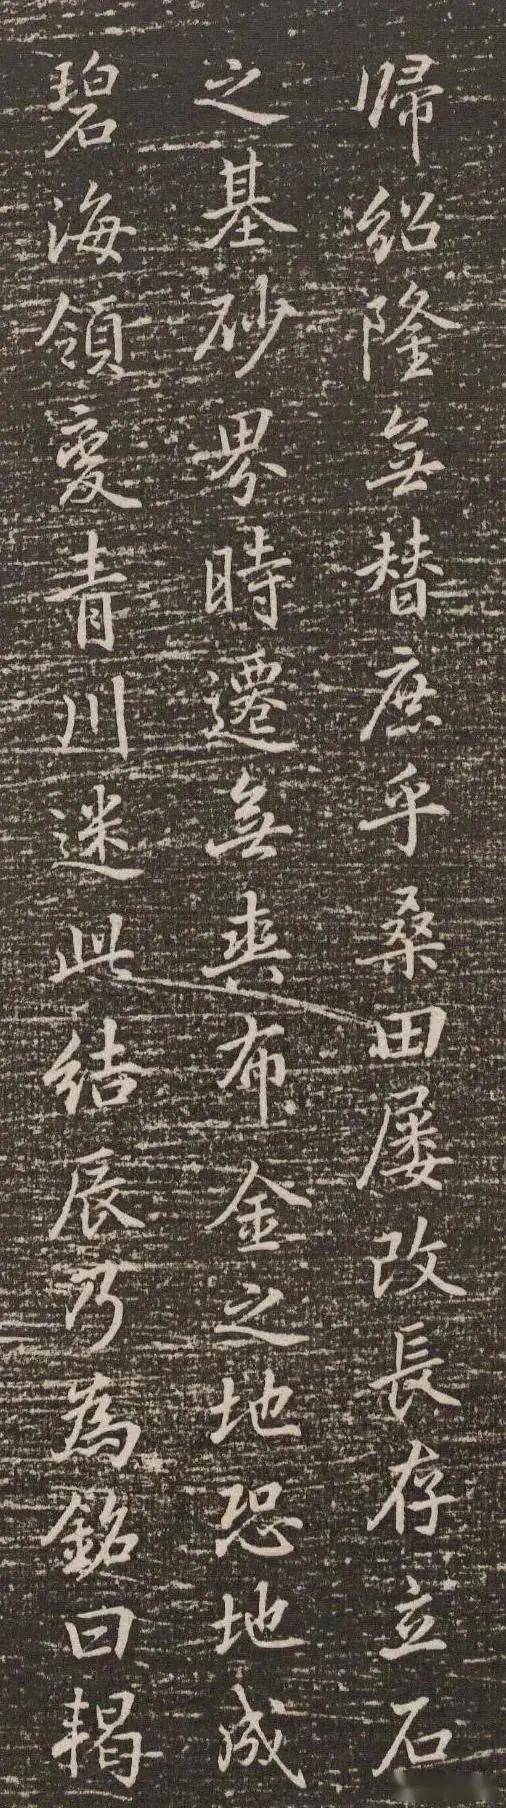 歸紹隆無替庶乎桑田屢改長存立石
之基砂界時遷無爽布金之地恐地成
碧海領變青川迷此結辰乃為銘曰